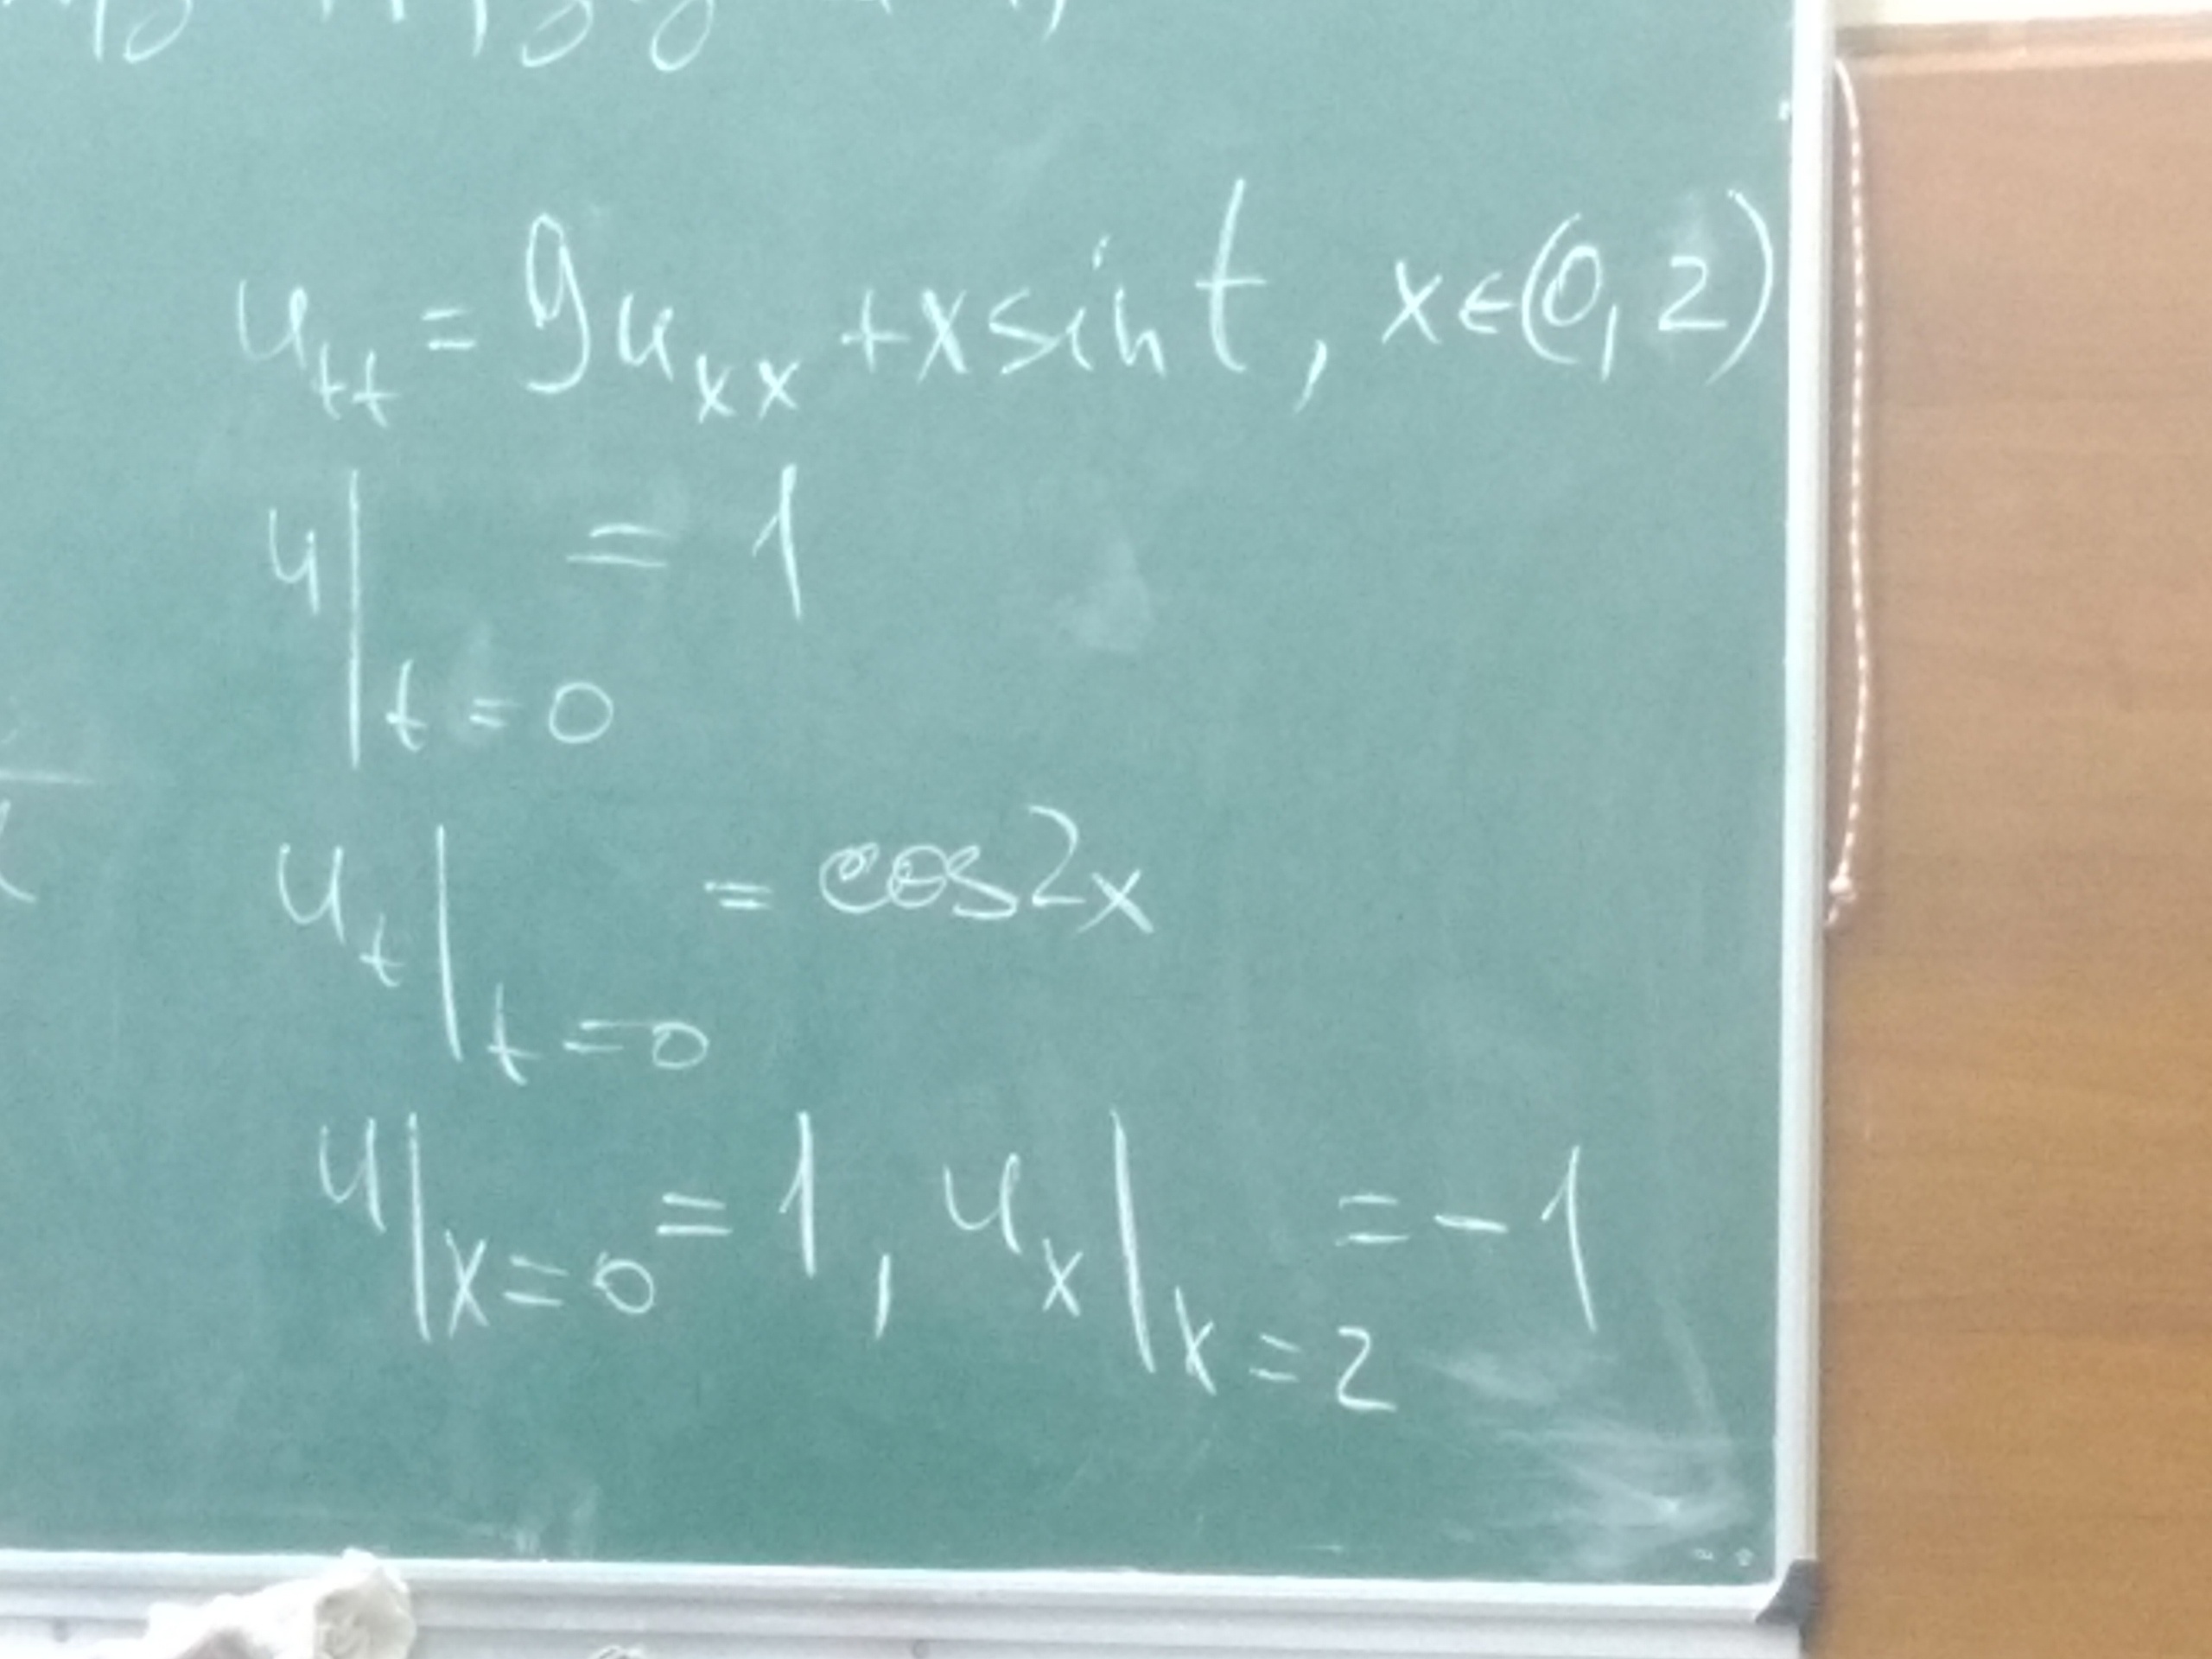 u_tt = 9u_xx + x sin t, x∈(0, 2)
u|_t=0 = 1
u_t|_t=0 = cos2x
u|_x=0 = 1, u_x|_x=2 = -1